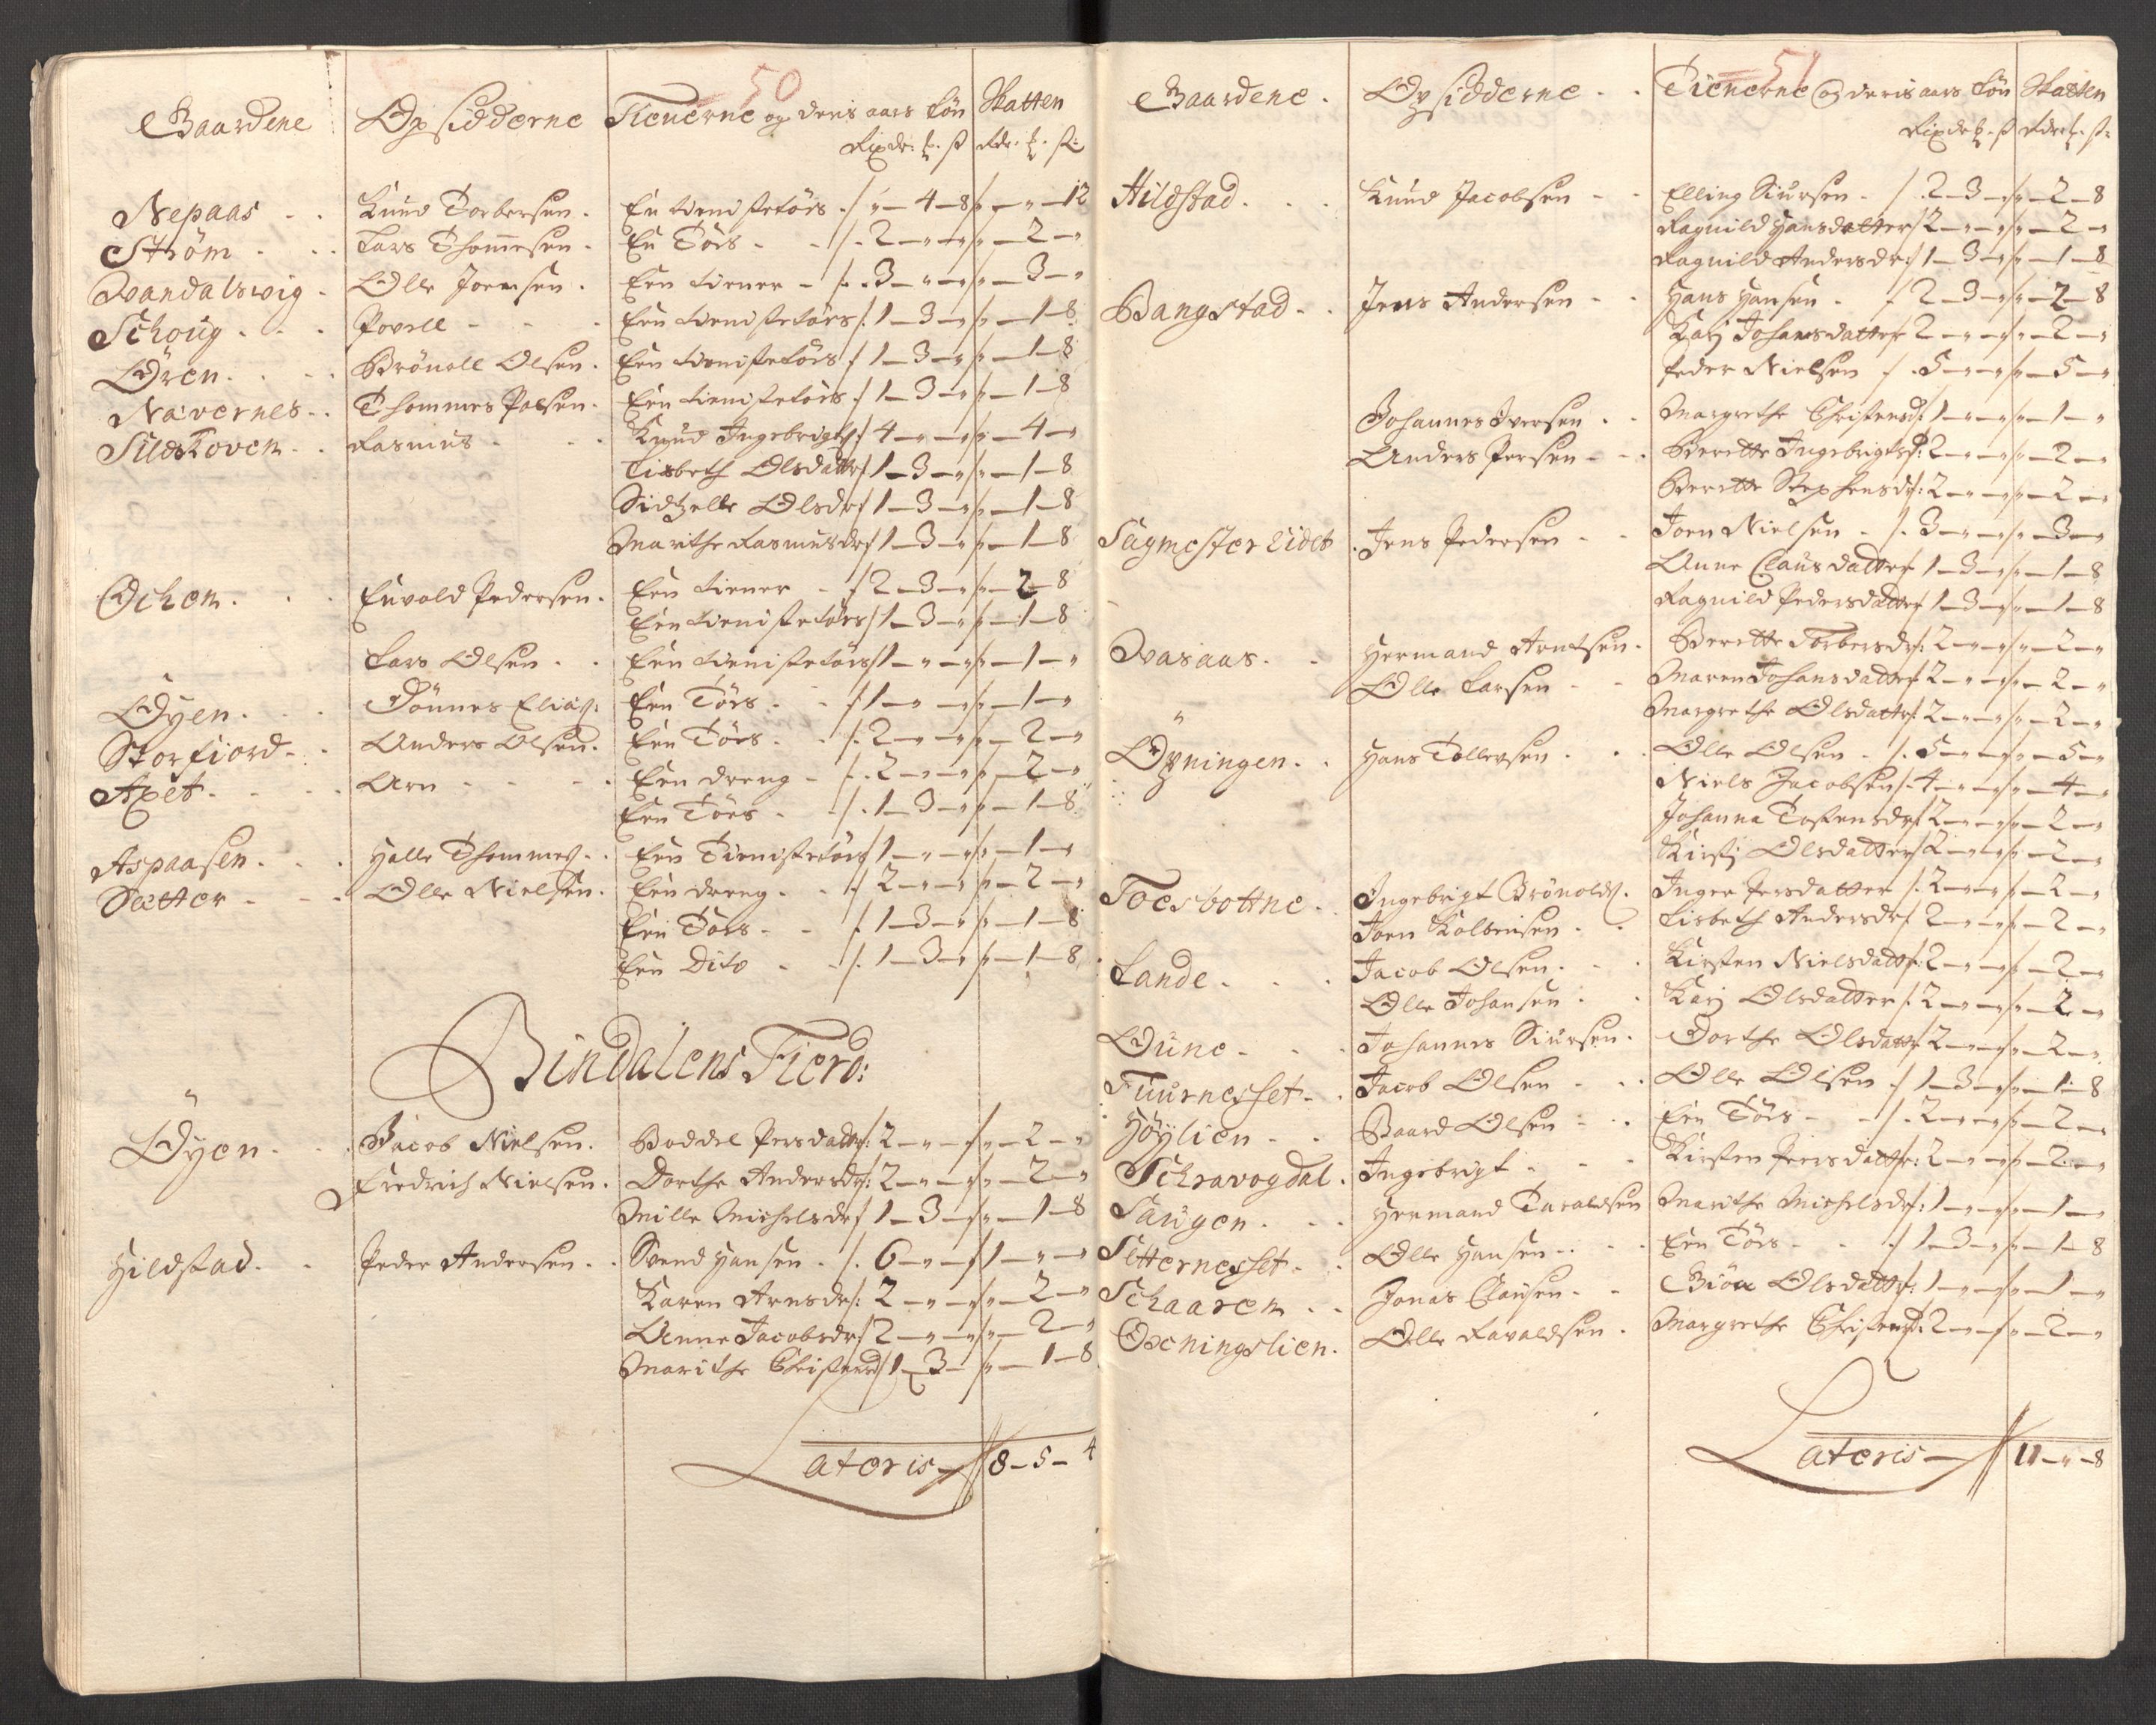 50
Gaardene Opsidderne Tienerne og deris aars Løn Skatten
Rixdr: ß Rdr: ß:
Nepaas - - Knud Torbersen. En tienistetøs ./. „ – 4 – 8 /„ – „ – 12
Strøm - - Lars Thommesen. En Tøs - - ./. 2 – „ – „ /„ – 2 – „
Wandalswig - Olle Joensen. Een tiener - ./. 3 – „ – „ /„ – 3 – „
Schoug - - Povell - - Een tienistetøs /. 1 – 3 – „ /„ – 1 – 8
Øren. - - Brönell Olsen. Een tienistetøs / 1 – 3 – „ /„ – 1 – 8
Nævernes - - Thommes Polsen. Een tienistetøs / 1 – 3 – „ /„ – 1 – 8
Sildskoven - - Rasmus - - Knud Ingebrigts: 4 – „ – „ /„ – 4 – „
Lisbeth Olsdatter / 1 – 3 – „ /„ – 1 – 8
Sidtzelle Olsdr / 1 – 3 – „ /„ – 1 – 8
Marithe Rasmusdr / 1 – 3 – „ /„ – 1 – 8
Ochen. - - Envold Pedersen. Een tiener - / 2 – 3 – „ /„ – 2 – 8
Een tienistetøs / 1 – 3 – „ /„ – 1 – 8
Lars Olsen - - Een tienistetøs / 1 – „ – „ /„ – 1 – „
Øyen. - - Dønnes Elias: Een Tøs - - / 1 – „ – „ /„ – 1 – „
Storfiord - - Anders Olsen. Een Tøs - - /. 2 – „ – „ /„ – 2 – „
Axet. - - Arn - - Een dreng - /. 2 – „ – „ /„ – 2 – „
Een Tøs - - /. 1 – 3 – „ /„ – 1 – 8
Aspaasen. - - Halle Thommes. Een Tienistetøs / 1 – „ – „ /„ – 1 – „
Sætter - - Olle Nielsen. Een dreng - - / 2 – „ – „ /„ – 2 – „
Een Tøs - - /. 1 – 3 – „ /„ – 1 – 8
Een Dito - - /. 1 – 3 – „ /„ – 1 – 8
Bindalens Fierd:
Øyen - - Jacob Nielsen. Boddel Persdatter: 2 – „ – „ /„ – 2 – „
Fredrich Nielsen. Dorthe Andersdr: 2 – „ – „ /„ – 2 – „
Mille Michelsdr / 1 – 3 – „ /„ – 1 – 8
Hildstad. - Peder Andersen. - Svend Hansen - /. 6 – „ – „ / 1 – „ – „
Karen Arnsdr: 2 – „ – „ /„ – 2 – „
Anne Jacobsdr / 2 – „ – „ /„ – 2 – „
Marithe Christensd / 1 – 3 – /„ – 1 – 8
Lateris – 8 – 5 – 4
51
Gaardene. Opsidderne - - Tienerne og deris aars Løn Skatten
Rixdr ß Rdr: ß:
Hildstad. - - Knud Jacobsen - - Elling Siursen - /. 2 – 3 – „ /„ – 2 – 8
Ragnild Hansdatter / 2 – „ – „ /„ – 2 – „
Ragnild Andersdr: / 1 – 3 – „ /„ – 1 – 8
Bangstad - - Jens Andersen - - Hans Hansen - / 2 – 3 – „ /„ – 2 – 8
Karj Johansdatter 2 – „ – „ /„ – 2 – „
Peder Nielsen /. 5 – „ – „ /„ – 5 – „
Johannes Iversen - - Margrethe Christensd: 1 – „ – „ /„ – 1 – „
Anders Persen - - Berette Ingebrigtsd: 2 – „ – „ /„ – 2 – „
Berette Stephensdr: 2 – „ – „ /„ – 2 – „
Sagmesterlidet. Jens Pedersen - - Joen Nielsen - /. 3 – „ – „ /„ – 3 – „
Anne Clausdatter 1 – 3 – „ /„ – 1 – 8
Ragnild Pedersdatter 1 – 3 – „ /„ – 1 – 8
Wasaas. - - Hermand Arntsen. Berette Torbersdr: 2 – „ – „ /„ – 2 – „
Olle Larsen - - Maren Johansdatter 2 – „ – „ /„ – 2 – „
Margrethe Olsdatter: 2 – „ – „ /„ – 2 – „
Øxningen. - Hans Tollersen - - Olle Olsen - /. 5 – „ – „ /„ – 5 – „
Niels Jacobsen /. 4 – „ – „ /„ – 4 – „
Johanna Tostensdr 2 – „ – „ /„ – 2 – „
Kirstj Olsdatter / 2 – „ – „ /„ – 2 – „
Toesbottne. Ingebrigt Brönolds. Inger Persdatter /. 2 – „ – „ /„ – 2 – „
Joen Kolbensen - - Lisbeth Andersdr / 2 – „ – „ /„ – 2 – „
Lande - - Jacob Olsen. - - Kirsten Nielsdatter: 2 – „ – „ /„ – 2 – „
Olle Johansen - - Karj Olsdatter /. 2 – „ – „ /„ – 2 – „
Øune - - Johannes Siursen. Dorthe Olsdatter 2 – „ – „ /„ – 2 – „
Fuurnesset - - Jacob Olsen - - Olle Olsen - / 1 – 3 – „ /„ – 1 – 8
Høylien - - Baard Olsen - - Een Tøs - - /. 2 – „ – „ /„ – 2 – „
Schravogdal. Ingebrigt - - Kirsten Persdatter: 2 – „ – „ /„ – 2 – „
Saugen. - - Hermand Taraldsen Marithe Michelsdr: 1 – „ – „ /„ – 1 – „
Setternesset - - Olle Hansen - - Een Tøs - - / 1 – 3 – „ /„ – 1 – 8
Schaaren - - Jonas Clausen - - Giøa Olsdatter: 1 – „ – „ /„ – 1 – „
Øxningslien. Olle Ravaldsen. Margrethe Christensd: 2 – „ – „ /„ – 2 – „
Lateris – 11 – „ – 8